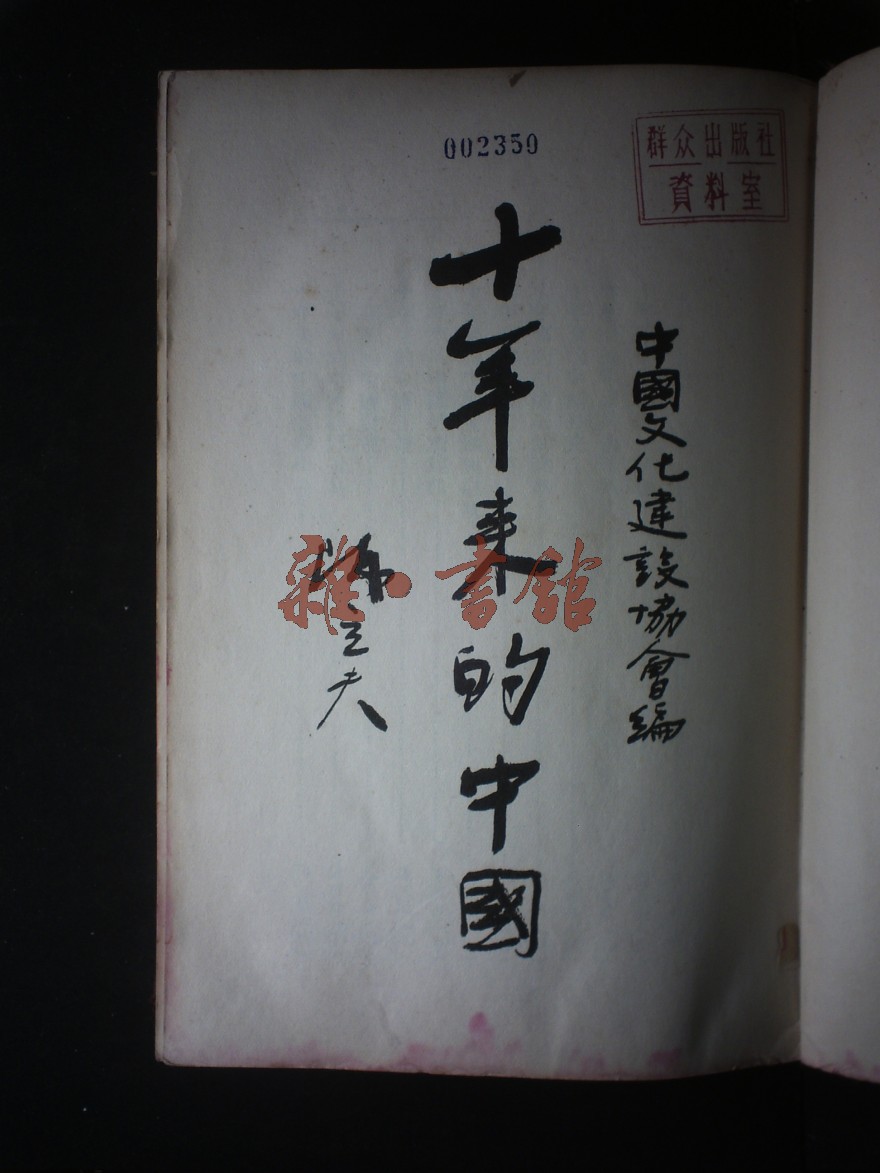 002350
群众出版社
資料室
中國文化建設協會編
十年来的中國
陳立夫
雜·書館